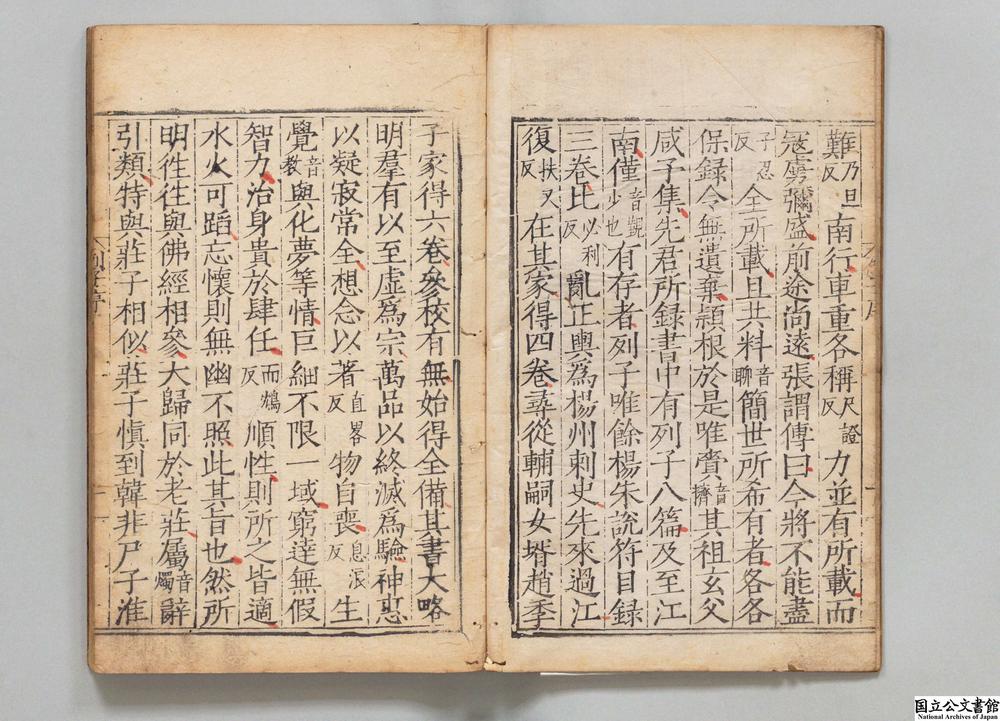 難乃旦反南行車重各稱尺證反力並有所載而
寇虜彌盛前途尚遠張謂傅曰今將不能盡
子忍反全所載且共料音聊簡世所希有者各各
保録令無遺棄穎根於是唯賫音擠其祖玄父
咸子集先君所録書中有列子八篇及至江
南僅音覲少也有存者列子唯餘楊朱說符目録
三卷比必利反亂正輿爲楊州刺史先來過江
復扶又反在其家得四卷尋從輔嗣女壻趙季
子家得六卷參校有無始得全備其書大略
明羣有以至虛爲宗萬品以終滅爲驗神惠
以疑寂常全想念以著直畧反物自喪息浪反生
覺音教與化夢等情巨細不限一域窮達無假
智力治身貴於肆任而鴆反順性則所之皆適
水火可蹈忘懷則無幽不照此其旨也然所
明徃徃與佛經相參大歸同於老莊屬音燭辭
引類特與莊子相似莊子愼到韓非尸子淮
国立公文書館
National Archives of Japan